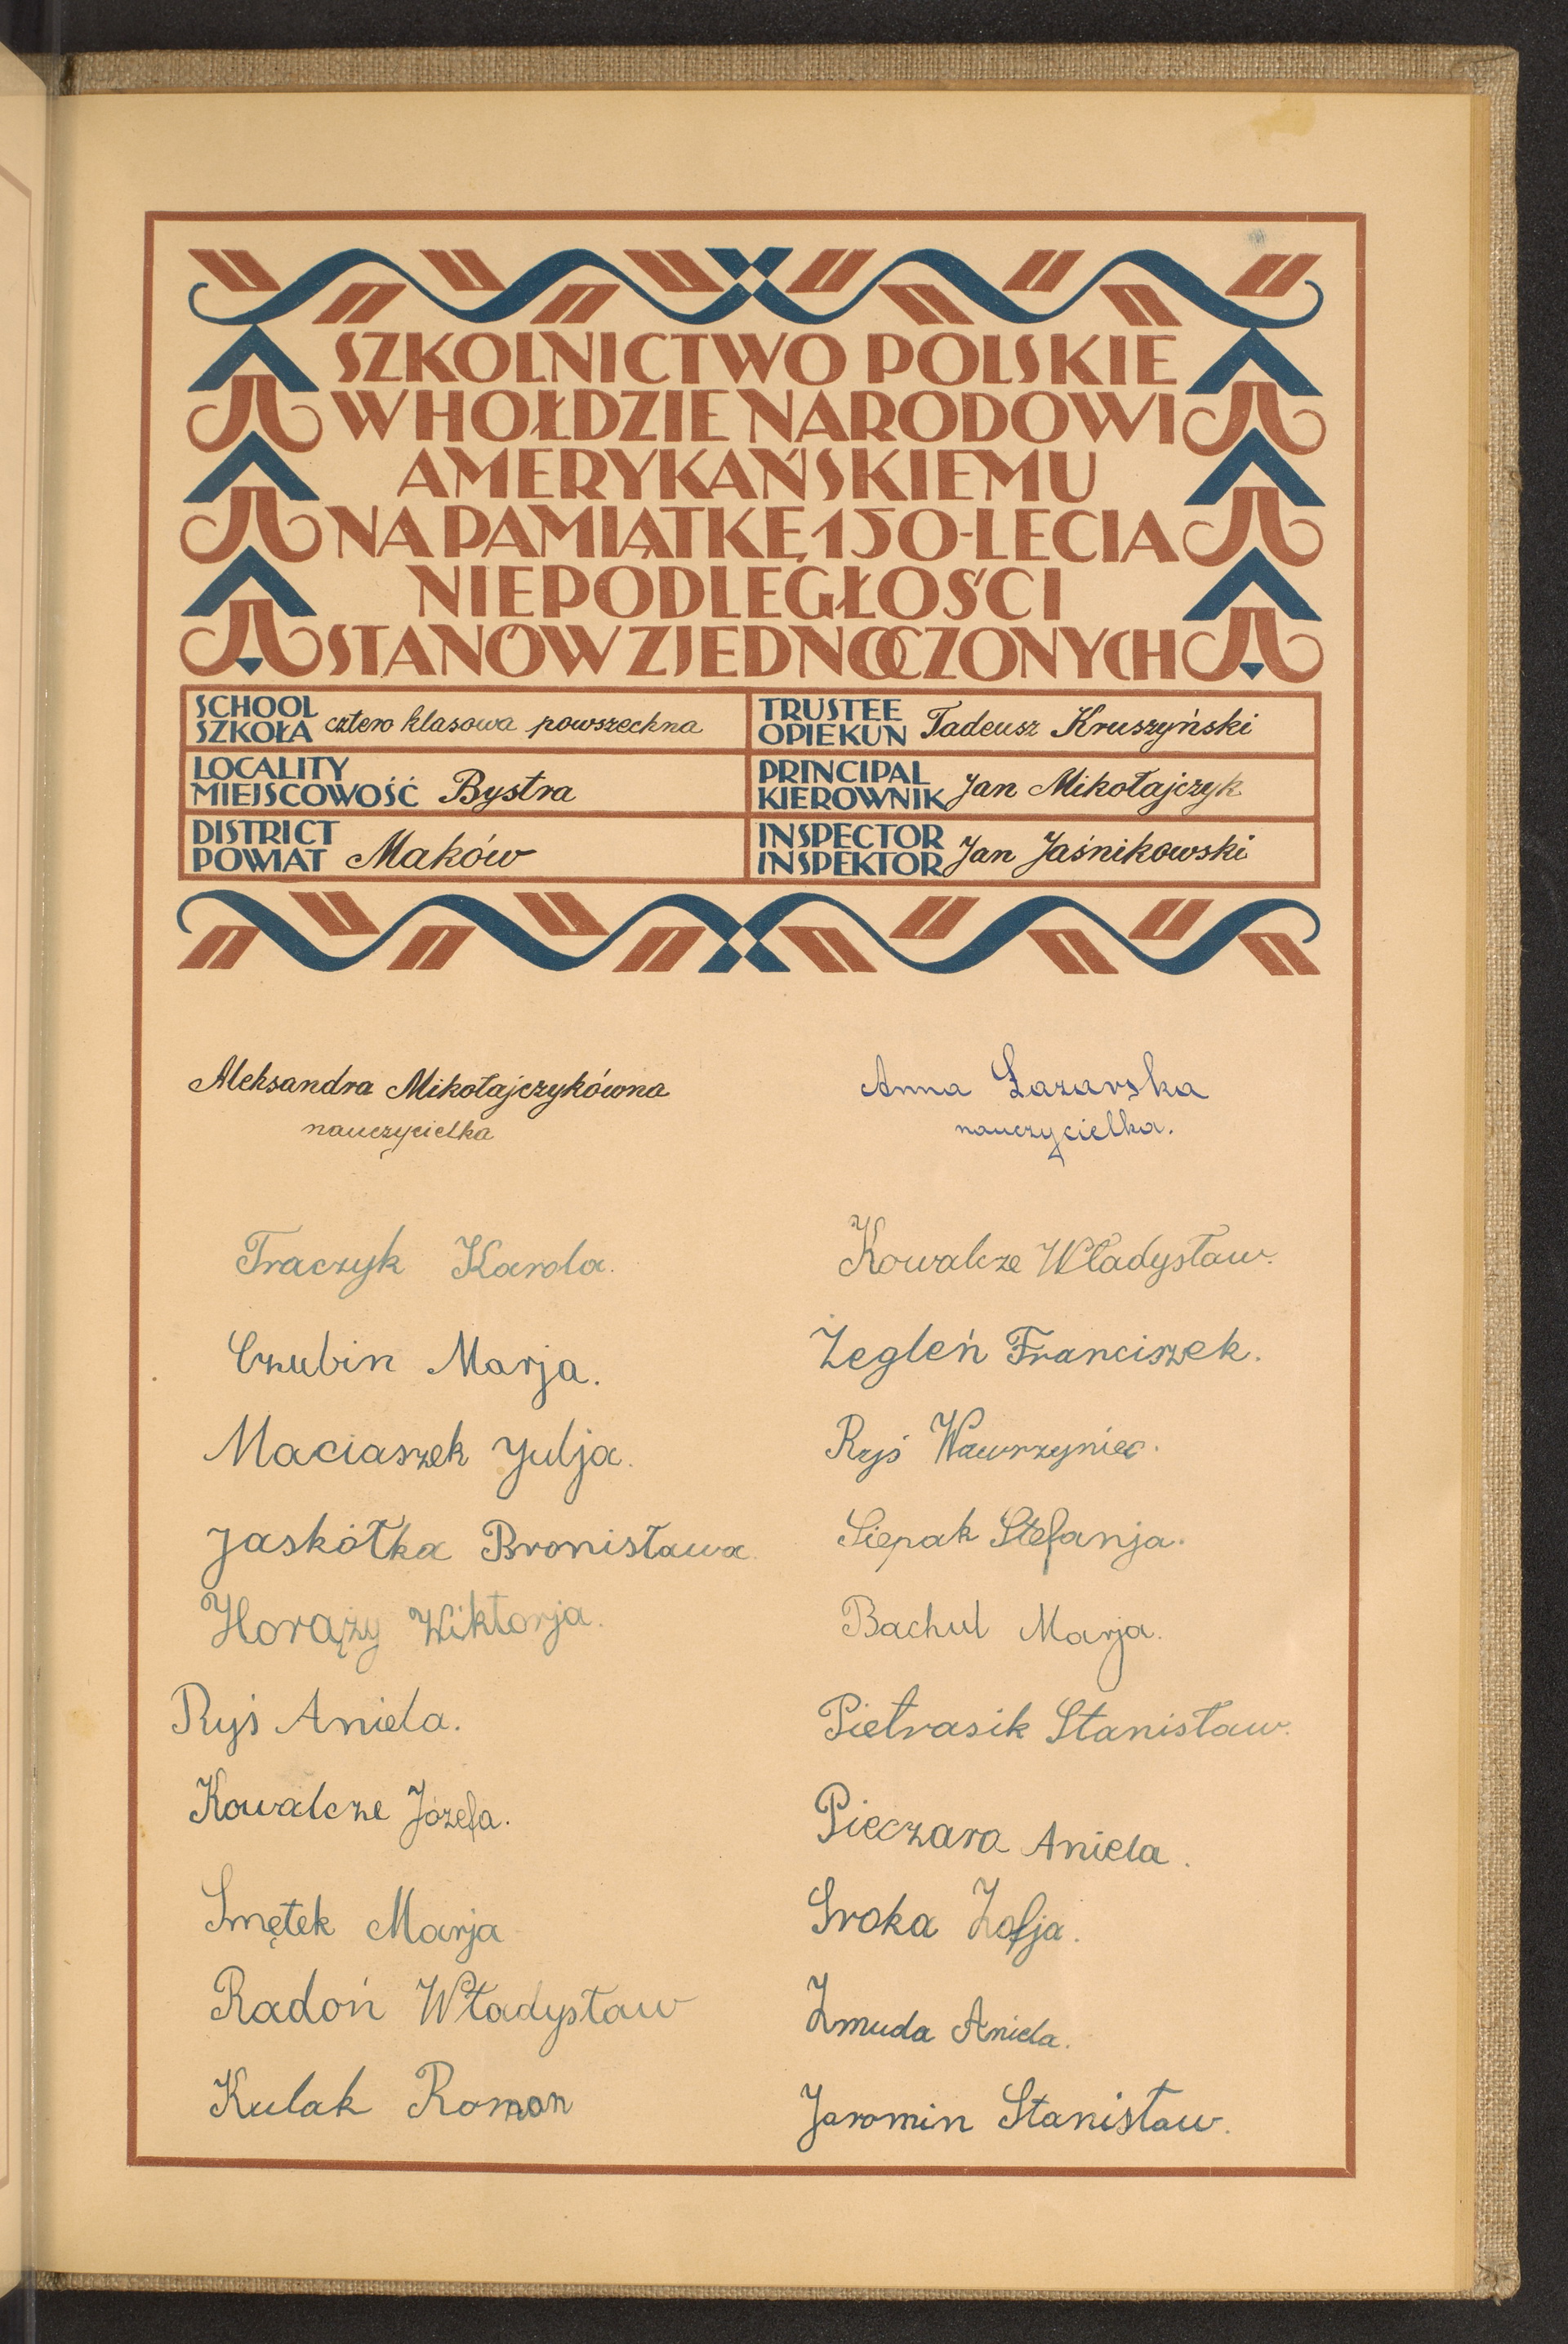 SZKOLNICTWO POLSKIE
W HOŁDZIE NARODOWI
AMERYKAŃSKIEMU
NA PAMIĄTKĘ 150-LECIA
NIEPODLEGŁOŚCI
STANÓW ZJEDNOCZONYCH
SCHOOL
SZKOŁA cztero klasowa powszechna
LOCALITY
MIEJSCOWOŚĆ Bystra
DISTRICT
POWIAT Maków
TRUSTEE
OPIEKUN Tadeusz Kruszyński
PRINCIPAL
KIEROWNIK Jan Mikołajczyk
INSPECTOR
INSPEKTOR Jan Jaśnikowski
Aleksandra Mikołajczykówna
nauczycielka
Anna Łazarska
nauczycielka.
Traczyk Karola.
Czubin Marja.
Maciaszek Julja.
Jaskółka Bronisława.
Horąży Wiktorja.
Ryś Aniela.
Kowalcze Józefa.
Smętek Marja
Radoń Władysław
Kulak Roman
Kowalcze Władysław.
Żegleń Franciszek.
Ryś Wawrzyniec.
Siepak Stefanja.
Bachul Marja.
Pietrasik Stanisław.
Pieczara Aniela.
Sroka Zofja.
Żmuda Aniela.
Jaromin Stanisław.